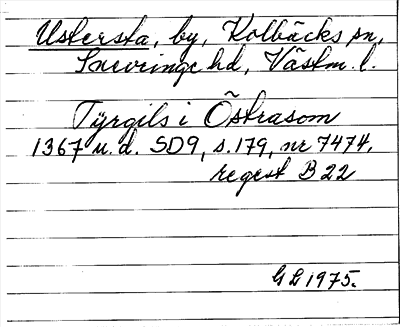 Ustersta, by, Kolbäcks sn,
Snevringe hd, Västm. l.
Tyrgils i Östrasom
1367 u.d. SD9, s.179, nr 7474,
regest B 22
G L 1975.